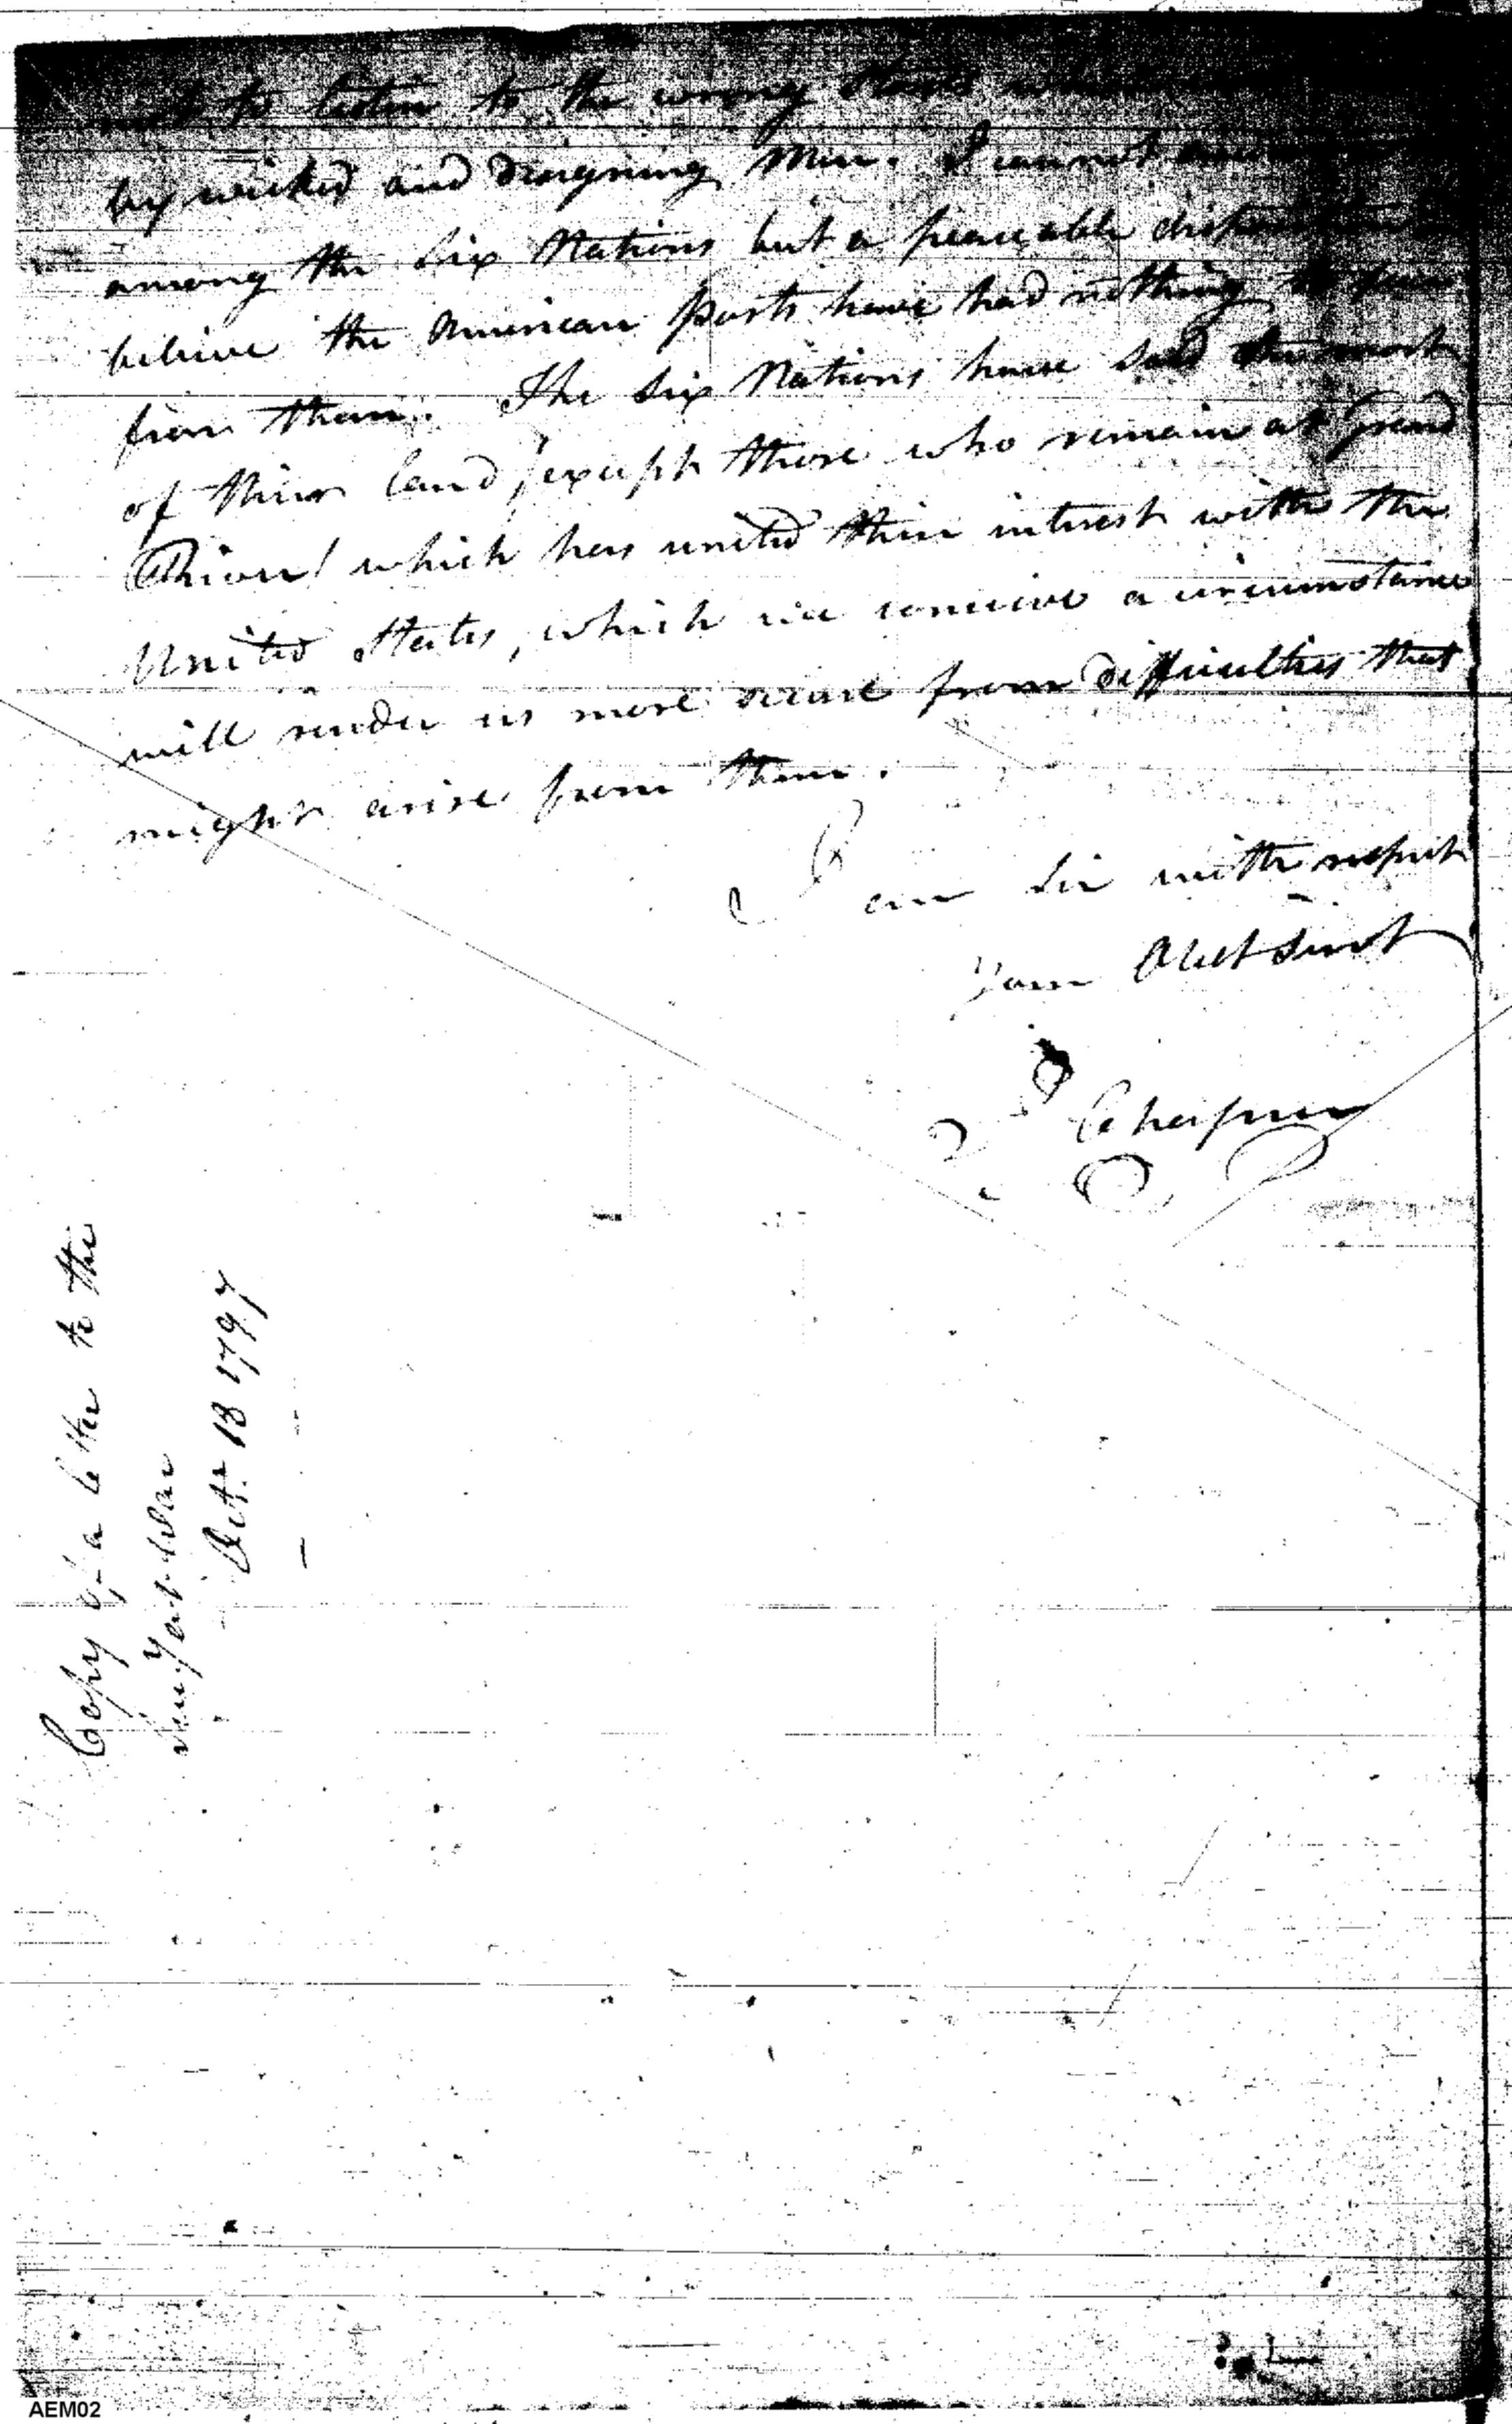 not to listen to the wrong
by wicked and designing Men. I cannot
among the Six Nations but a peaceable disposition
believe the American posts have had nothing to fear
from them. The Six Nations have sold the most
of their land (except those who remain at Grand
River) which has united their interest with the
United States, which we conceive a circumstance
will render us more secure from difficulties that
might arise from them.
I am Sir with respect
Your Obet Servt
Chapin
Copy of a letter to the
Secy of War
Octr 18 1797
AEM02